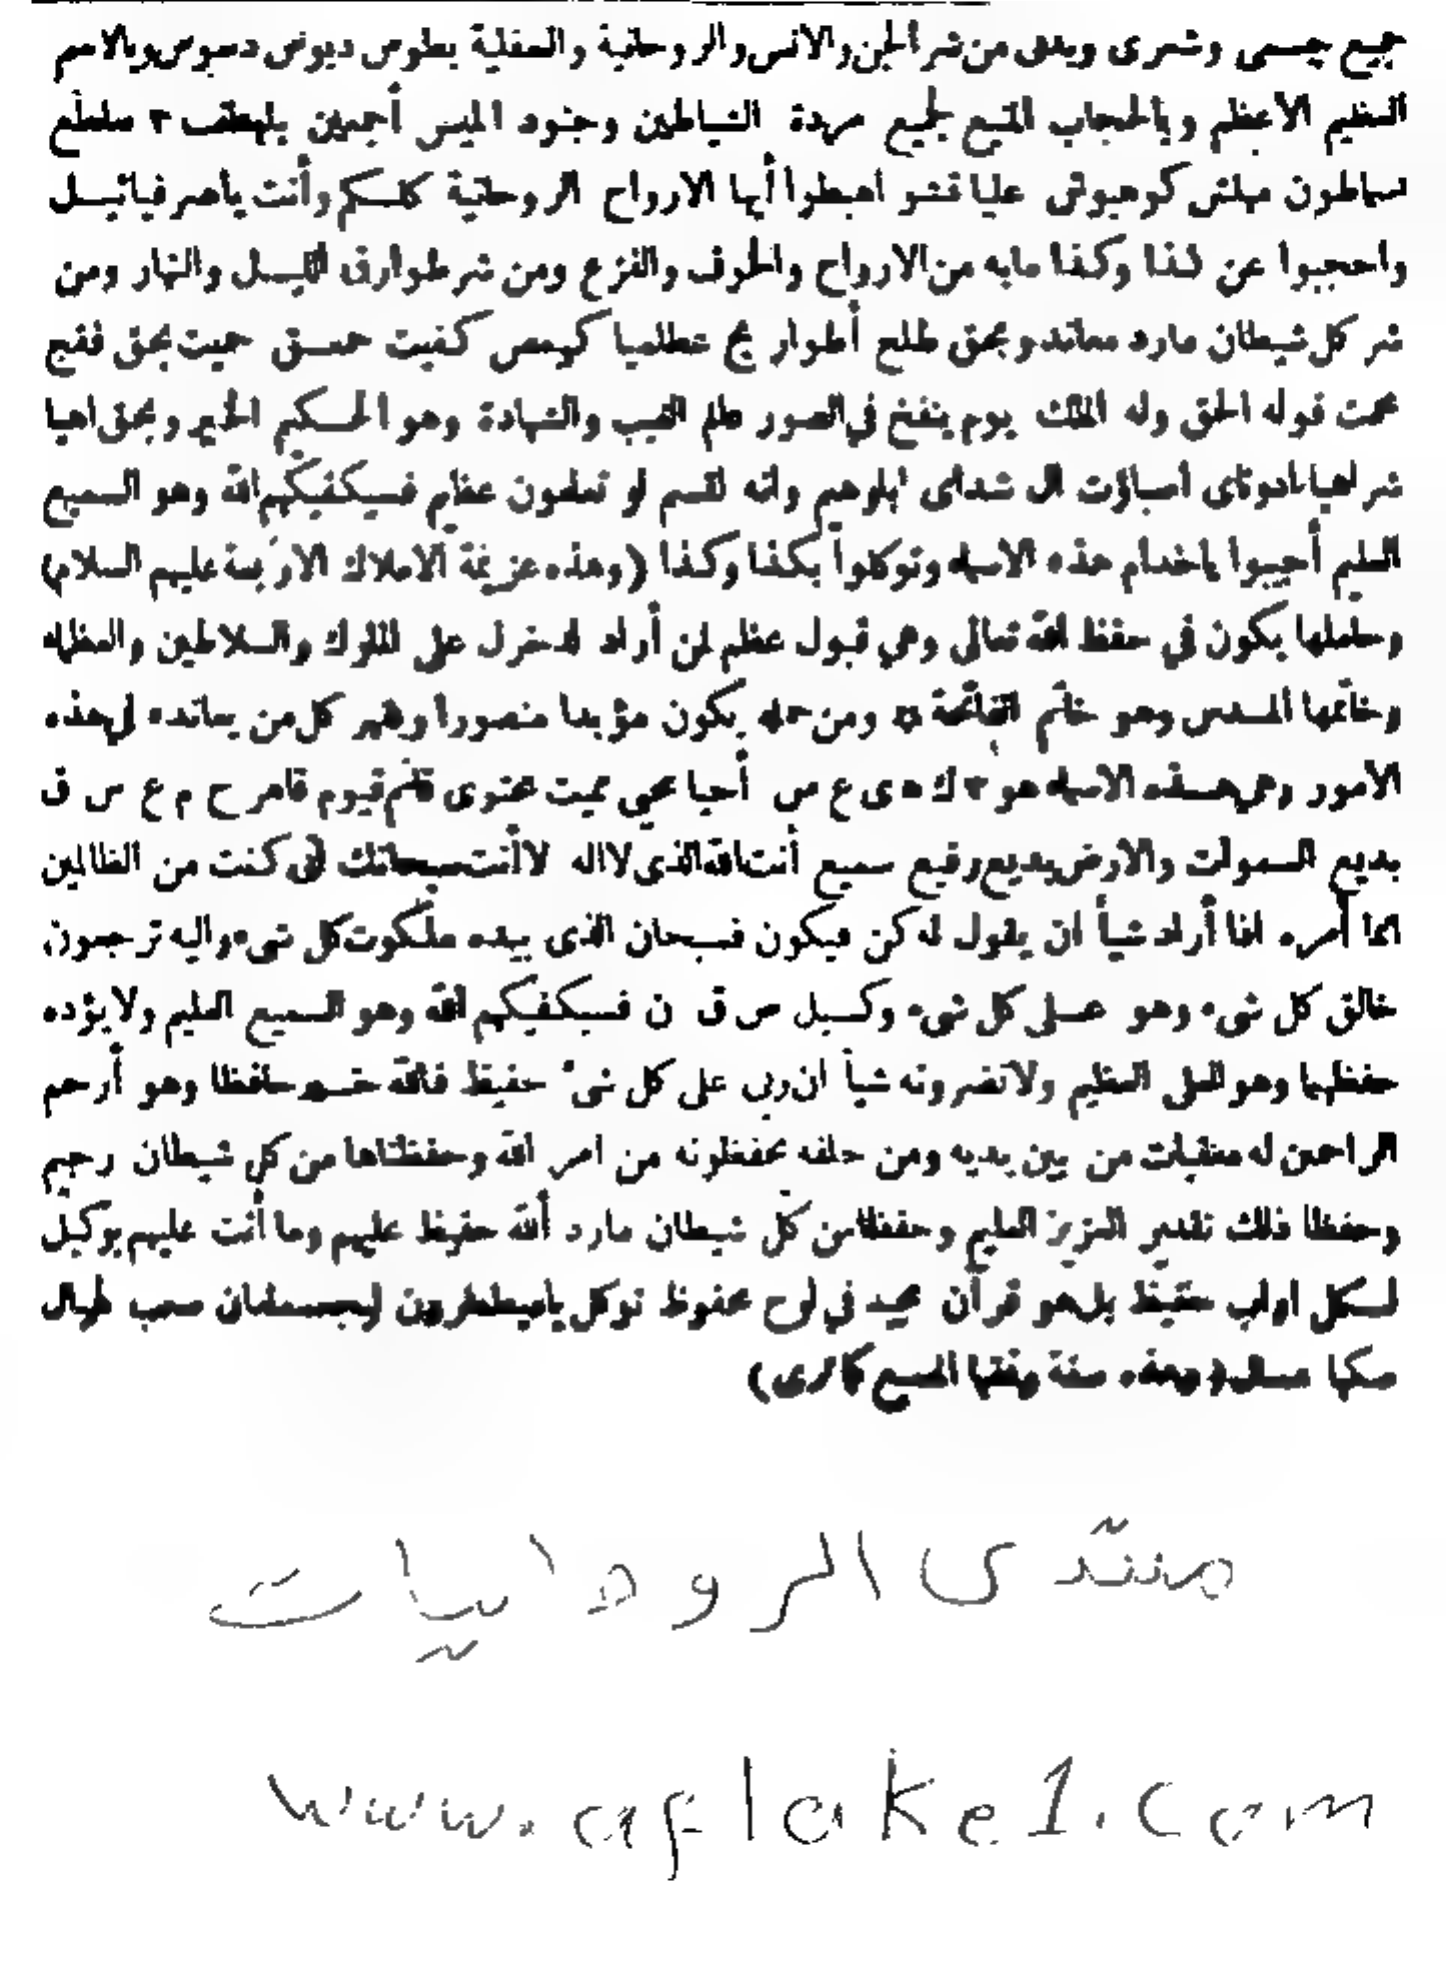 جميع جسمى وشعرى وبدنى من شر الجن والانس والروحانية والسفلية بطوس ديوس دسوس وبالاسم
العظيم الأعظم وبالحجاب المنيع لجميع مردة الشياطين وجنود ابليس أجمعين
أهبطوا أيها الارواح الروحانية كلكم وأنت ياصرفيائيل
واحجبوا عن كذا وكذا مابه من الارواح والخوف والفزع ومن شر طوارق الليل والنهار ومن
شر كل شيطان مارد معاند وبحق طلع أطوار كهيعص كفيت حمعسق حميت بحق فقج
مخمت قوله الحق وله الملك يوم ينفخ في الصور علم الغيب والشهادة وهو الحكيم الخبير وبحق اهيا
شراهيا ادوناى اصباؤت ال شداى ايلوهيم وانه لقسم لو تعلمون عظيم فسيكفيكهم الله وهو السميع
العليم أجيبوا ياخدام هذه الاسماء وتوكلوا بكذا وكذا (وهذه عزيمة الاملاك الاربعة عليهم السلام)
وحاملها يكون في حفظ الله تعالى وهي قبول عظيم لمن أراد الدخول على الملوك والسلاطين والعظماء
وخاتمها المسدس وهو خاتم الفاتحة ✡ ومن حمله يكون مؤيدا منصورا وقهر كل من يعانده في هذه
الامور وهي هذه الاسماء هو ٣ ك ه ى ع ص أحيا محيي مميت قائم قيوم قاهر ح م ع س ق
بديع السموات والارض بديع رفيع سميع أنت الله الذى لااله لاأنت سبحانك انى كنت من الظالمين
انما أمره اذا أراد شيأ ان يقول له كن فيكون فسبحان الذى بيده ملكوت كل شىء واليه ترجعون
خالق كل شىء وهو على كل شىء وكيل ص ق ن فسيكفيكهم الله وهو السميع العليم ولا يؤده
حفظهما وهو العلى العظيم ولا تضرونه شيأ ان ربى على كل شىء حفيظ فالله خير حافظا وهو أرحم
الراحمين له معقبات من بين يديه ومن خلفه يحفظونه من امر الله وحفظناها من كل شيطان رجيم
وحفظا ذلك تقدير العزيز العليم وحفظا من كل شيطان مارد الله حفيظ عليهم وما أنت عليهم بوكيل
لكل اواب حفيظ بل هو قرآن مجيد في لوح محفوظ توكل ياميططرون
(وهذه صفة وفقها المسبع كماترى)
منتدى الروحانيات
www.aflake1.com